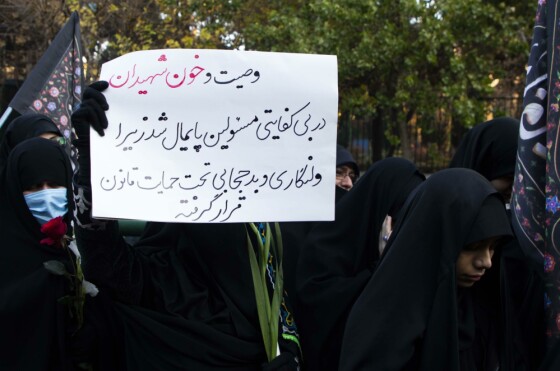 وصیت و خون شهیدان
در بی کفایتی مسئولین پایمال شد زیرا
ولنگاری و بدحجابی تحت حمایت قانون
قرار گرفته